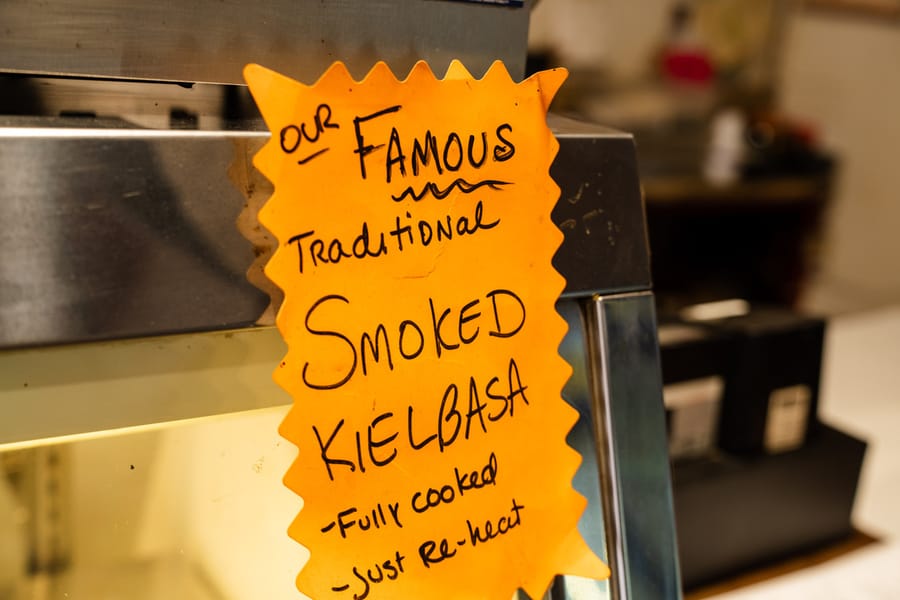 OUR FAMOUS
Traditional
SMOKED
KIELBASA
-Fully cooked
-Just Re-heat